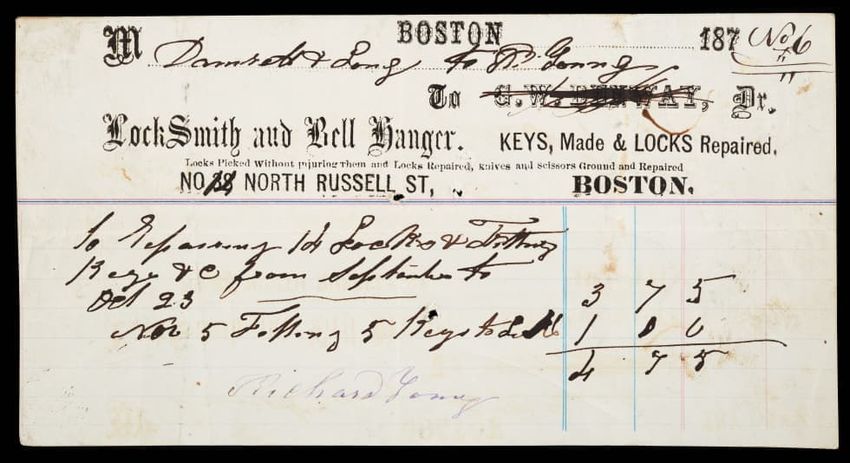 BOSTON 187 No 6
M Damrell & Long to R. Young
To G. W. DENWAY, Dr.
LockSmith and Bell Hanger. KEYS, Made & LOCKS Repaired,
Locks Picked Without injuring Them and Locks Repaired, knives and scissors Ground and Repaired
NO 18 NORTH RUSSELL ST, BOSTON.
to Repairing 14 Locks & Fitting
Keys &c from September to
Oct 23 3 75
Nov 5 Fitting 5 Keys to 1 00
4 75
Richard Young